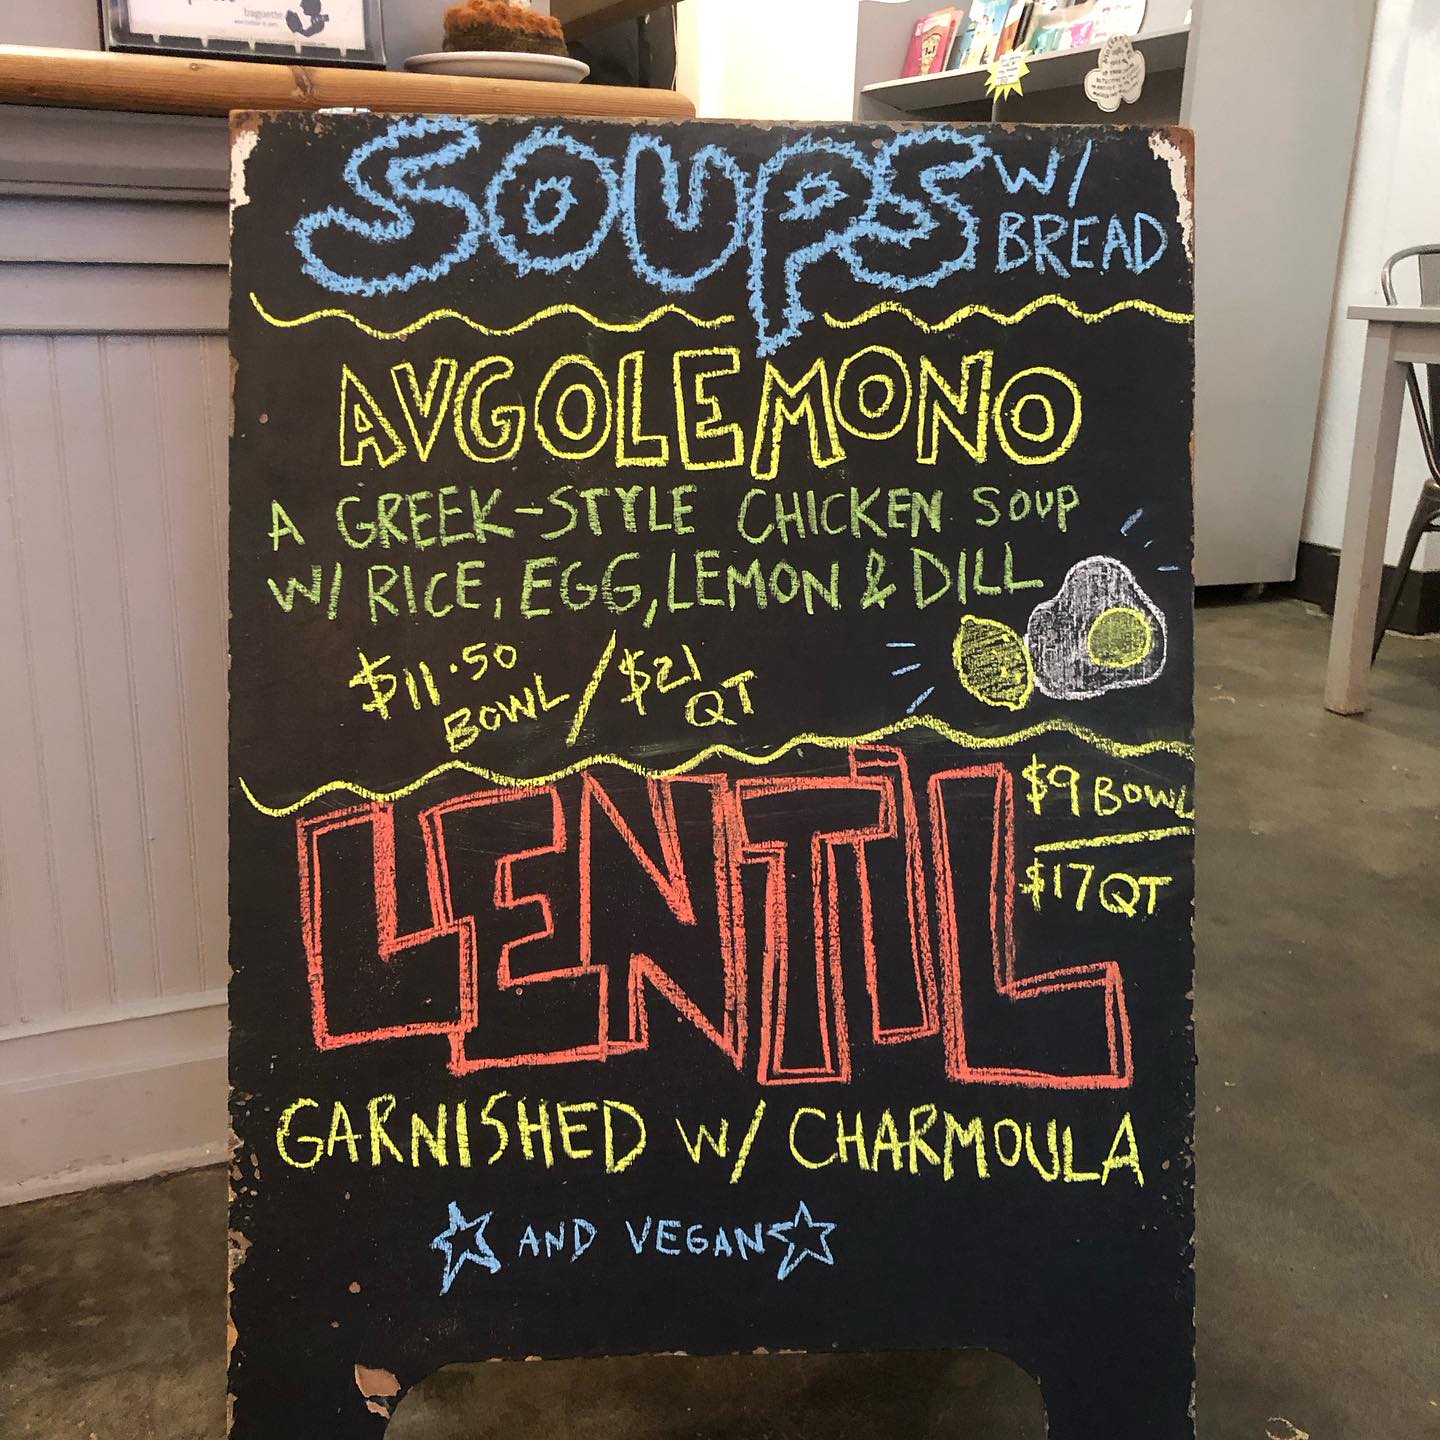 baguette
SOUPS W/ BREAD
AVGOLEMONO
A GREEK-STYLE CHICKEN SOUP
W/ RICE, EGG, LEMON & DILL
$11.50 BOWL / $21 QT
LENTIL
$9 BOWL
$17 QT
GARNISHED W/ CHARMOULA
AND VEGAN